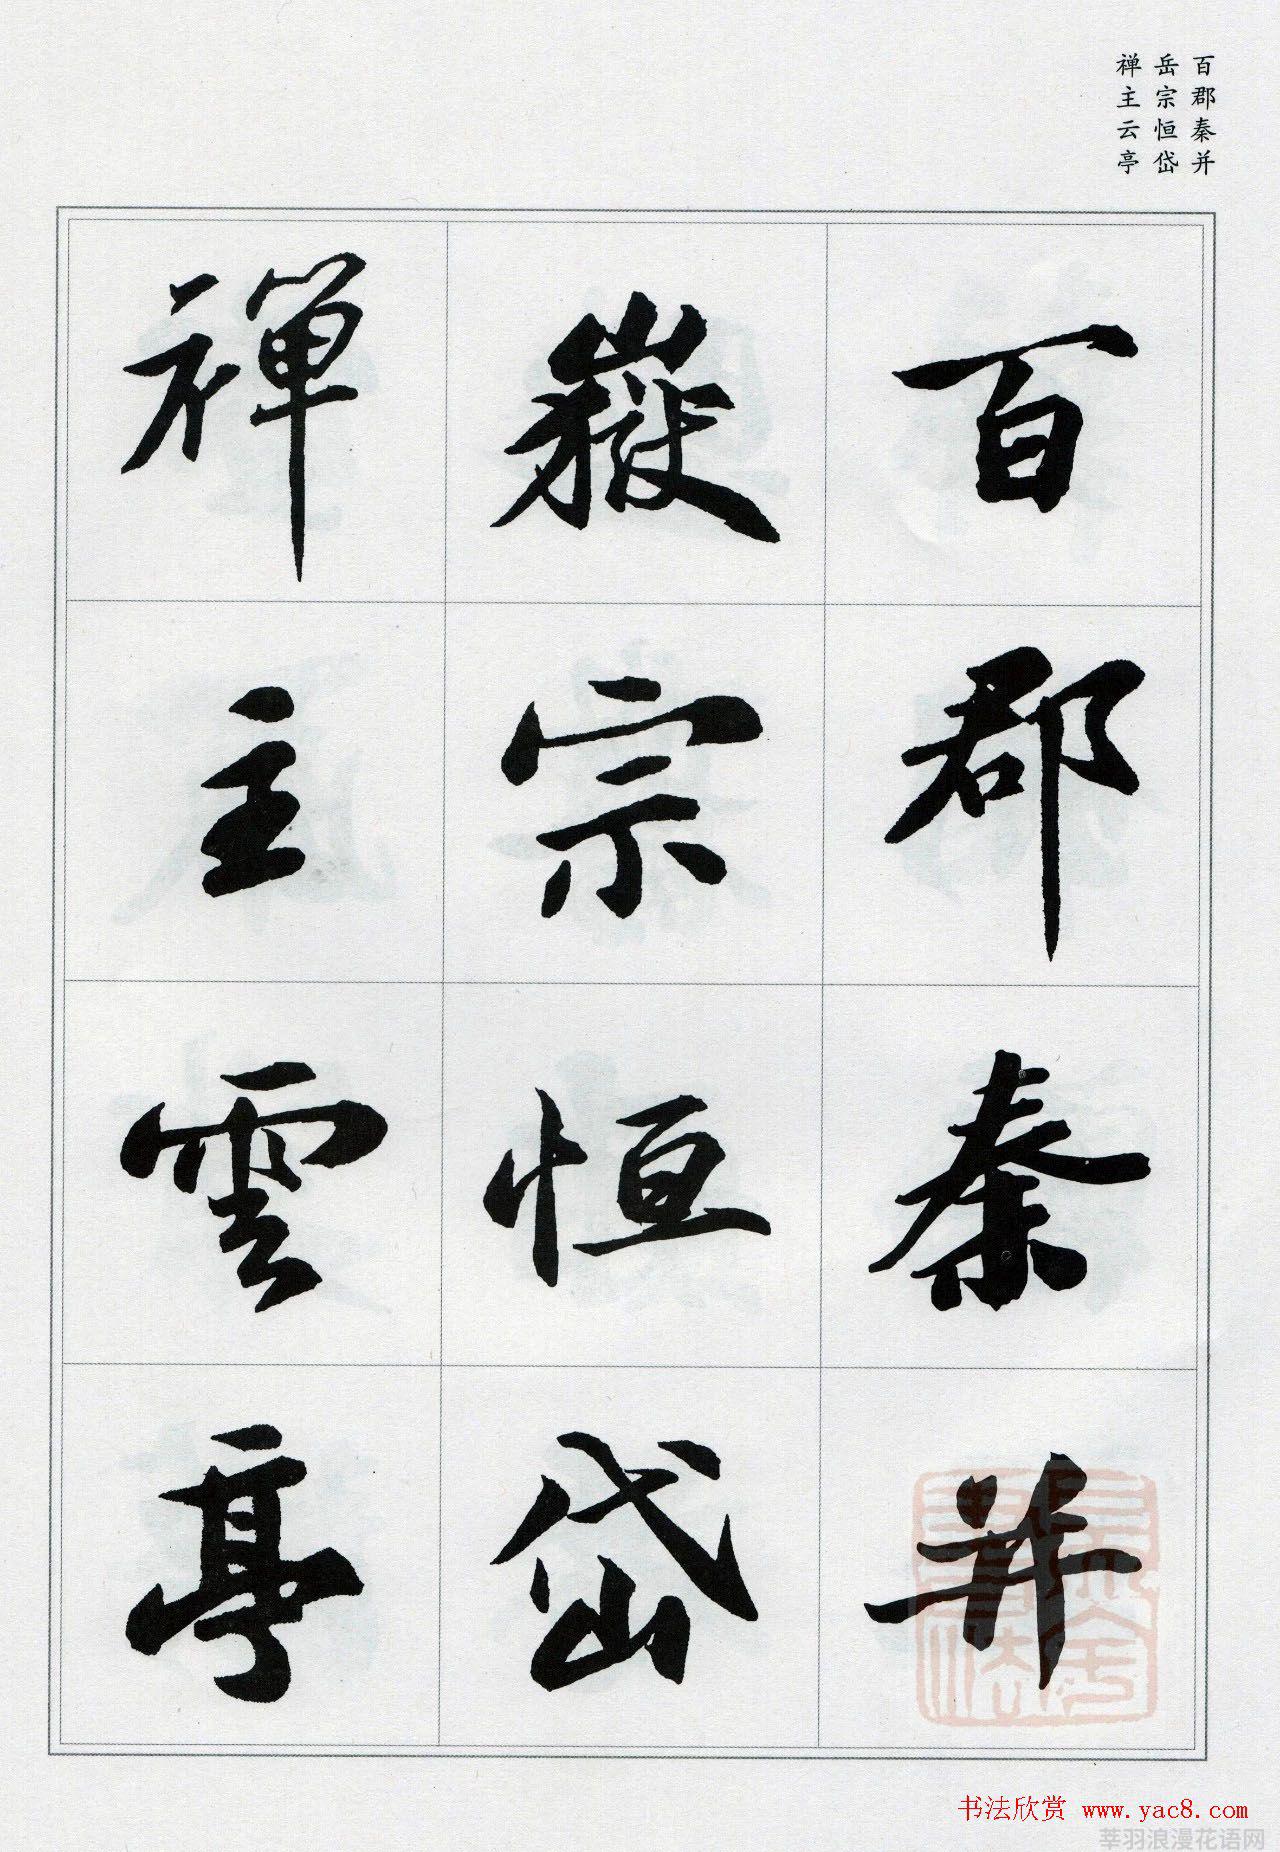 百郡秦并
岳宗恒岱
禅主云亭
百郡秦并
嶽宗恒岱
禪主雲亭
书法欣赏 www.yac8.com
莘羽浪漫花语网